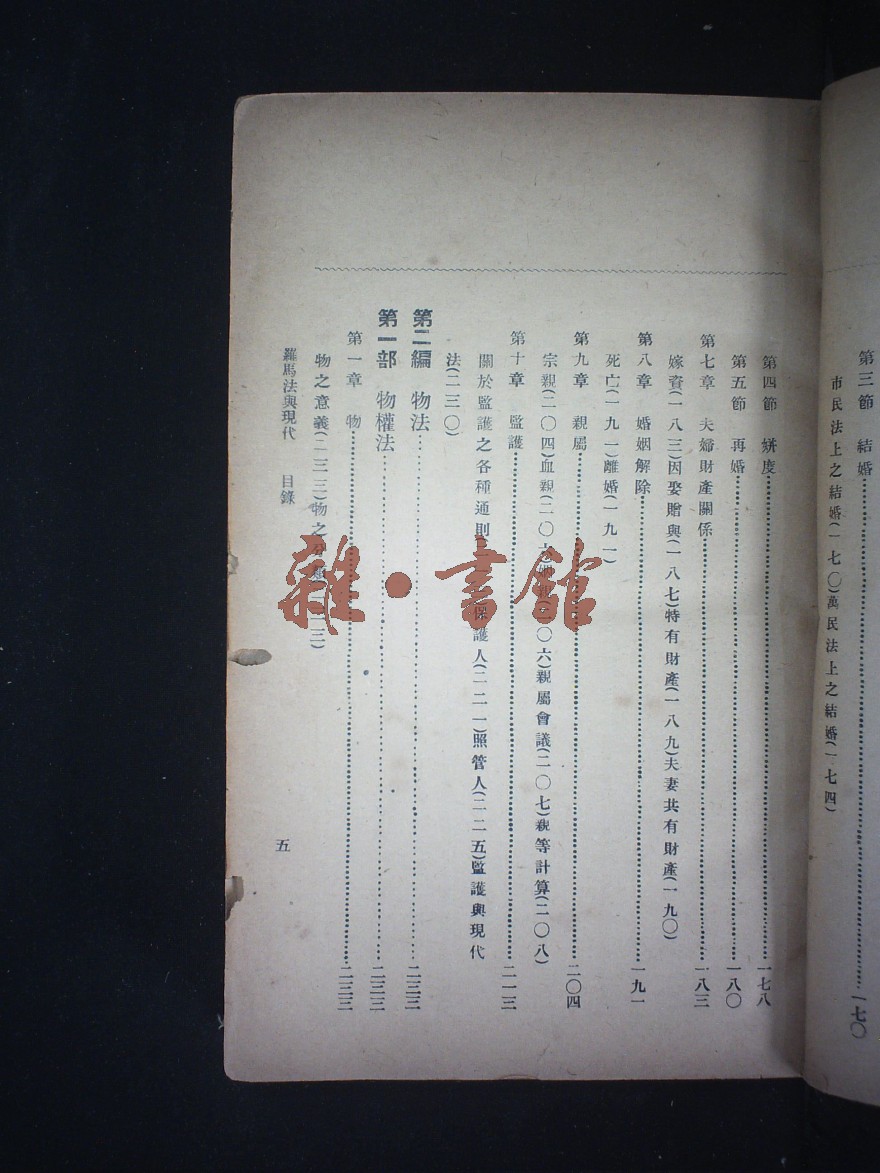 第三節 結婚……一七〇
市民法上之結婚(一七〇)萬民法上之結婚(一七四)
第四節 姘度……一七八
第五節 再婚……一八〇
第七章 夫婦財產關係……一八三
嫁資(一八三)因娶贈與(一八七)特有財產(一八九)夫妻共有財產(一九〇)
第八章 婚姻解除……一九一
死亡(一九一)離婚(一九一)
第九章 親屬……二〇四
宗親(二〇四)血親(二〇六)姻親(二〇六)親屬會議(二〇七)親等計算(二〇八)
第十章 監護……二一三
關於監護之各種通則 保護人(二二一)照管人(二二五)監護與現代
法(二三〇)
第二編 物法……二三三
第一部 物權法……二三三
第一章 物……二三三
物之意義(二三三)物之分類(二三三)
羅馬法與現代 目錄
五
雜·書館